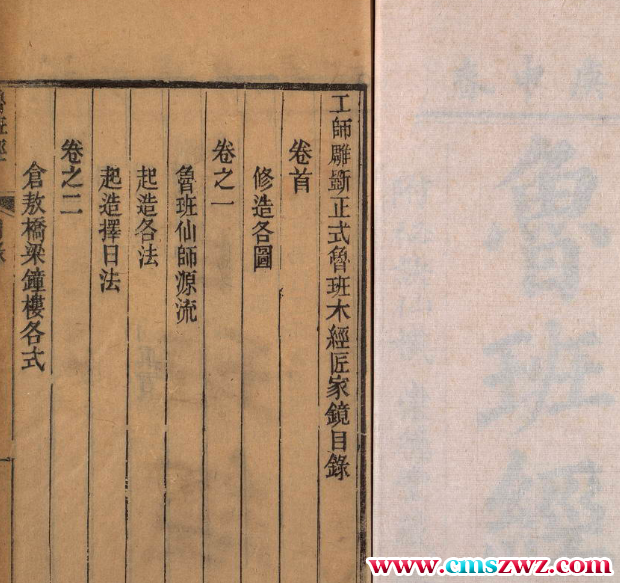 魯班經
工師雕斵正式魯班木經匠家鏡目錄
卷首
修造各圖
卷之一
魯班仙師源流
起造各法
起造擇日法
卷之二
倉敖橋梁鐘樓各式
www.cmszwz.com